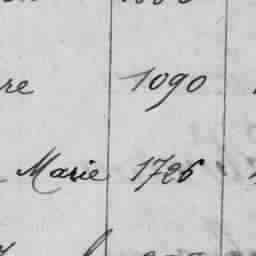 re 1090
Marie 1726